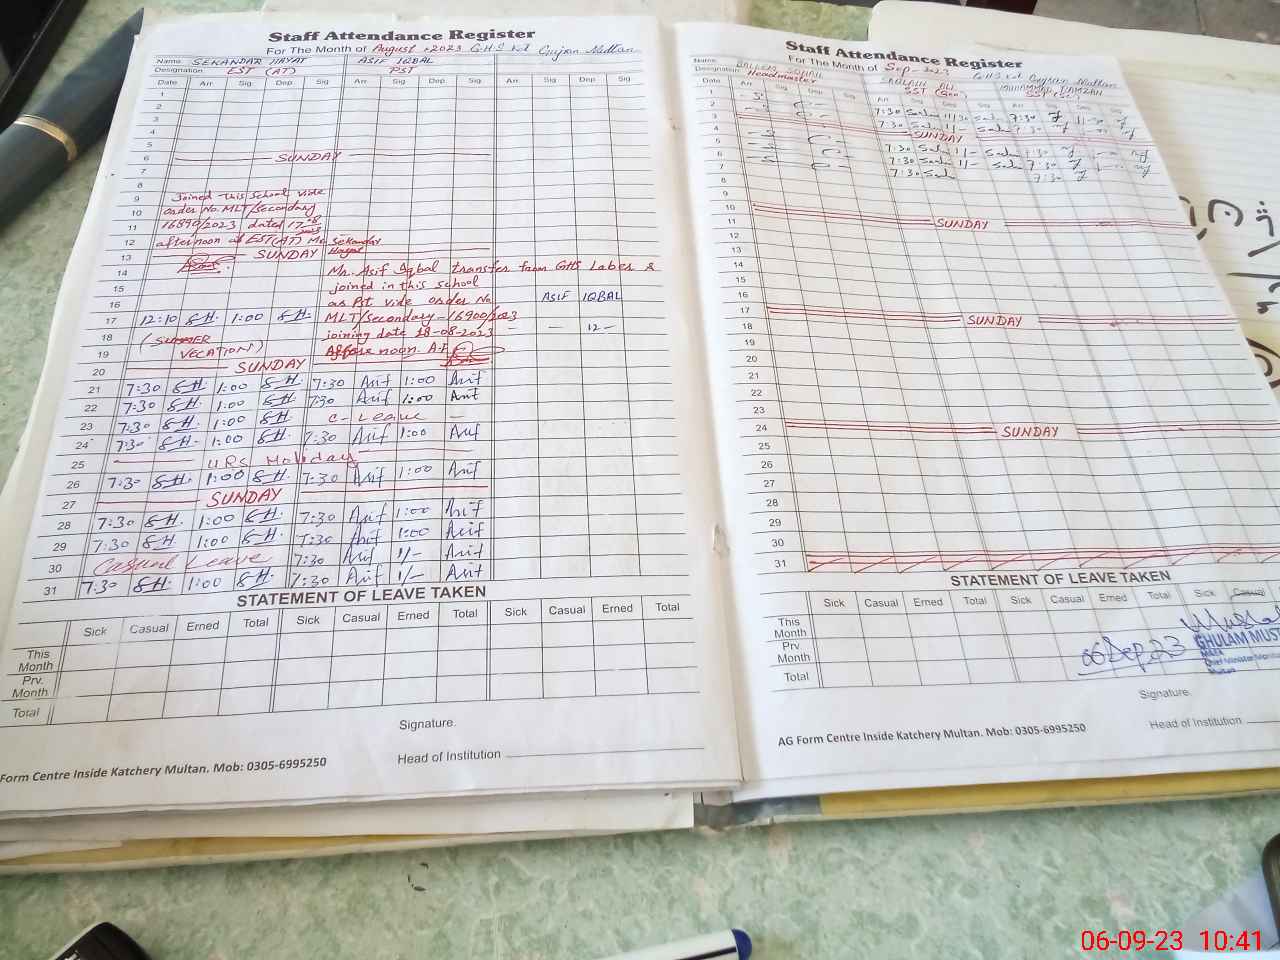 Staff Attendance Register
For The Month of August, 2023 G.H.S Kot Gujran Multan
Name SEKANDAR HAYAT ASIF IQBAL
Designation EST (AT) PST
Date Arr Sig Dep Sig Arr Sig Dep Sig Arr Sig Dep Sig
1
2
3
4
5
6 SUNDAY
7
8
9 Joined this school vide
10 order No. MLT/secondary
11 16890/2023 dated 17-8-2023
12 afternoon as EST(AT) Mr. Sekandar Hayat
13 SUNDAY
14 Mr. Asif Iqbal transfer from GHS Labar &
15 joined in this school
16 as Pst vide order No ASIF IQBAL
17 12:10 S.H. 1:00 S.H. MLT/secondary-16900/2023
18 (SUMMER joining date 18-08-2023 — — 12—
19 VECATION) noon.
20 SUNDAY
21 7:30 S.H. 1:00 S.H. 7:30 Asif 1:00 Asif
22 7:30 S.H. 1:00 S.H. 7:30 Asif 1:00 Asif
23 7:30 S.H. 1:00 S.H. C-Leave —
24 7:30 S.H. 1:00 S.H. 7:30 Asif 1:00 Asif
25 URS Holiday
26 7:30 S.H. 1:00 S.H. 7:30 Asif 1:00 Asif
27 SUNDAY
28 7:30 S.H. 1:00 S.H. 7:30 Asif 1:00 Asif
29 7:30 S.H. 1:00 S.H. 7:30 Asif 1:00 Asif
30 Casual Leave 7:30 Asif 1/- Asif
31 7:30 S.H. 1:00 S.H. 7:30 Asif 1/- Asif
STATEMENT OF LEAVE TAKEN
Sick Casual Erned Total Sick Casual Erned Total Sick Casual Erned Total
This Month
Prv. Month
Total
Signature.
Head of Institution
Form Centre Inside Katchery Multan. Mob: 0305-6995250
Staff Attendance Register
For The Month of Sep-2023 GHS Kot Gujran Multan
Name SAQLAIN ALI MUHAMMAD RAMZAN
Designation Headmaster SST (Gen) SST (Sc)
Date Arr Sig Dep Sig Arr Sig Dep Sig Arr Sig Dep
1 7:30 11:30 7:30 11-30
2 7:30 11- 7:30
3 SUNDAY
4 7:30 11- 7:30
5 7:30 11- 7:30
6 7:30 7:30
7
8
9
10 SUNDAY
11
12
13
14
15
16
17 SUNDAY
18
19
20
21
22
23
24 SUNDAY
25
26
27
28
29
30
31
STATEMENT OF LEAVE TAKEN
Sick Casual Erned Total Sick Casual Erned Total Sick Casual
This Month
Prv. Month
Total
06 Sep, 23
GHULAM MUST
MEA
Chief Minister Monitor
Multan
Signature.
Head of Institution
AG Form Centre Inside Katchery Multan. Mob: 0305-6995250
06-09-23 10:41